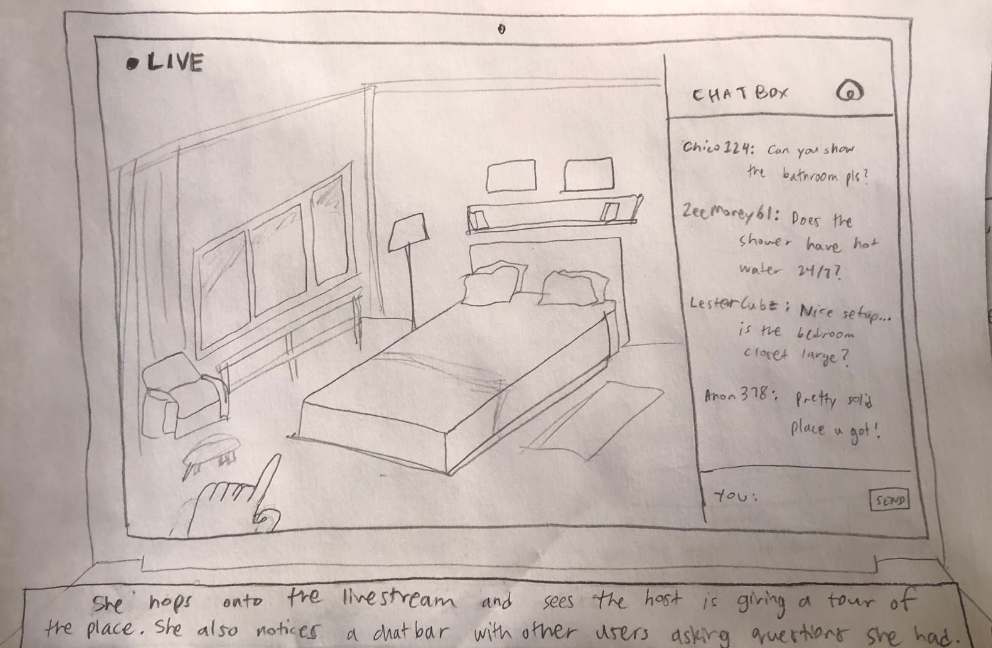 • LIVE
CHATBOX
Chico124: Can you show
the bathroom pls?
ZeeMoney61: Does the
shower have hot
water 24/7?
LesterCubz: Nice setup...
is the bedroom
closet large?
Anon378: Pretty solid
place u got!
YOU:
SEND
She hops onto the livestream and sees the host is giving a tour of
the place. She also notices a chatbar with other users asking questions she had.